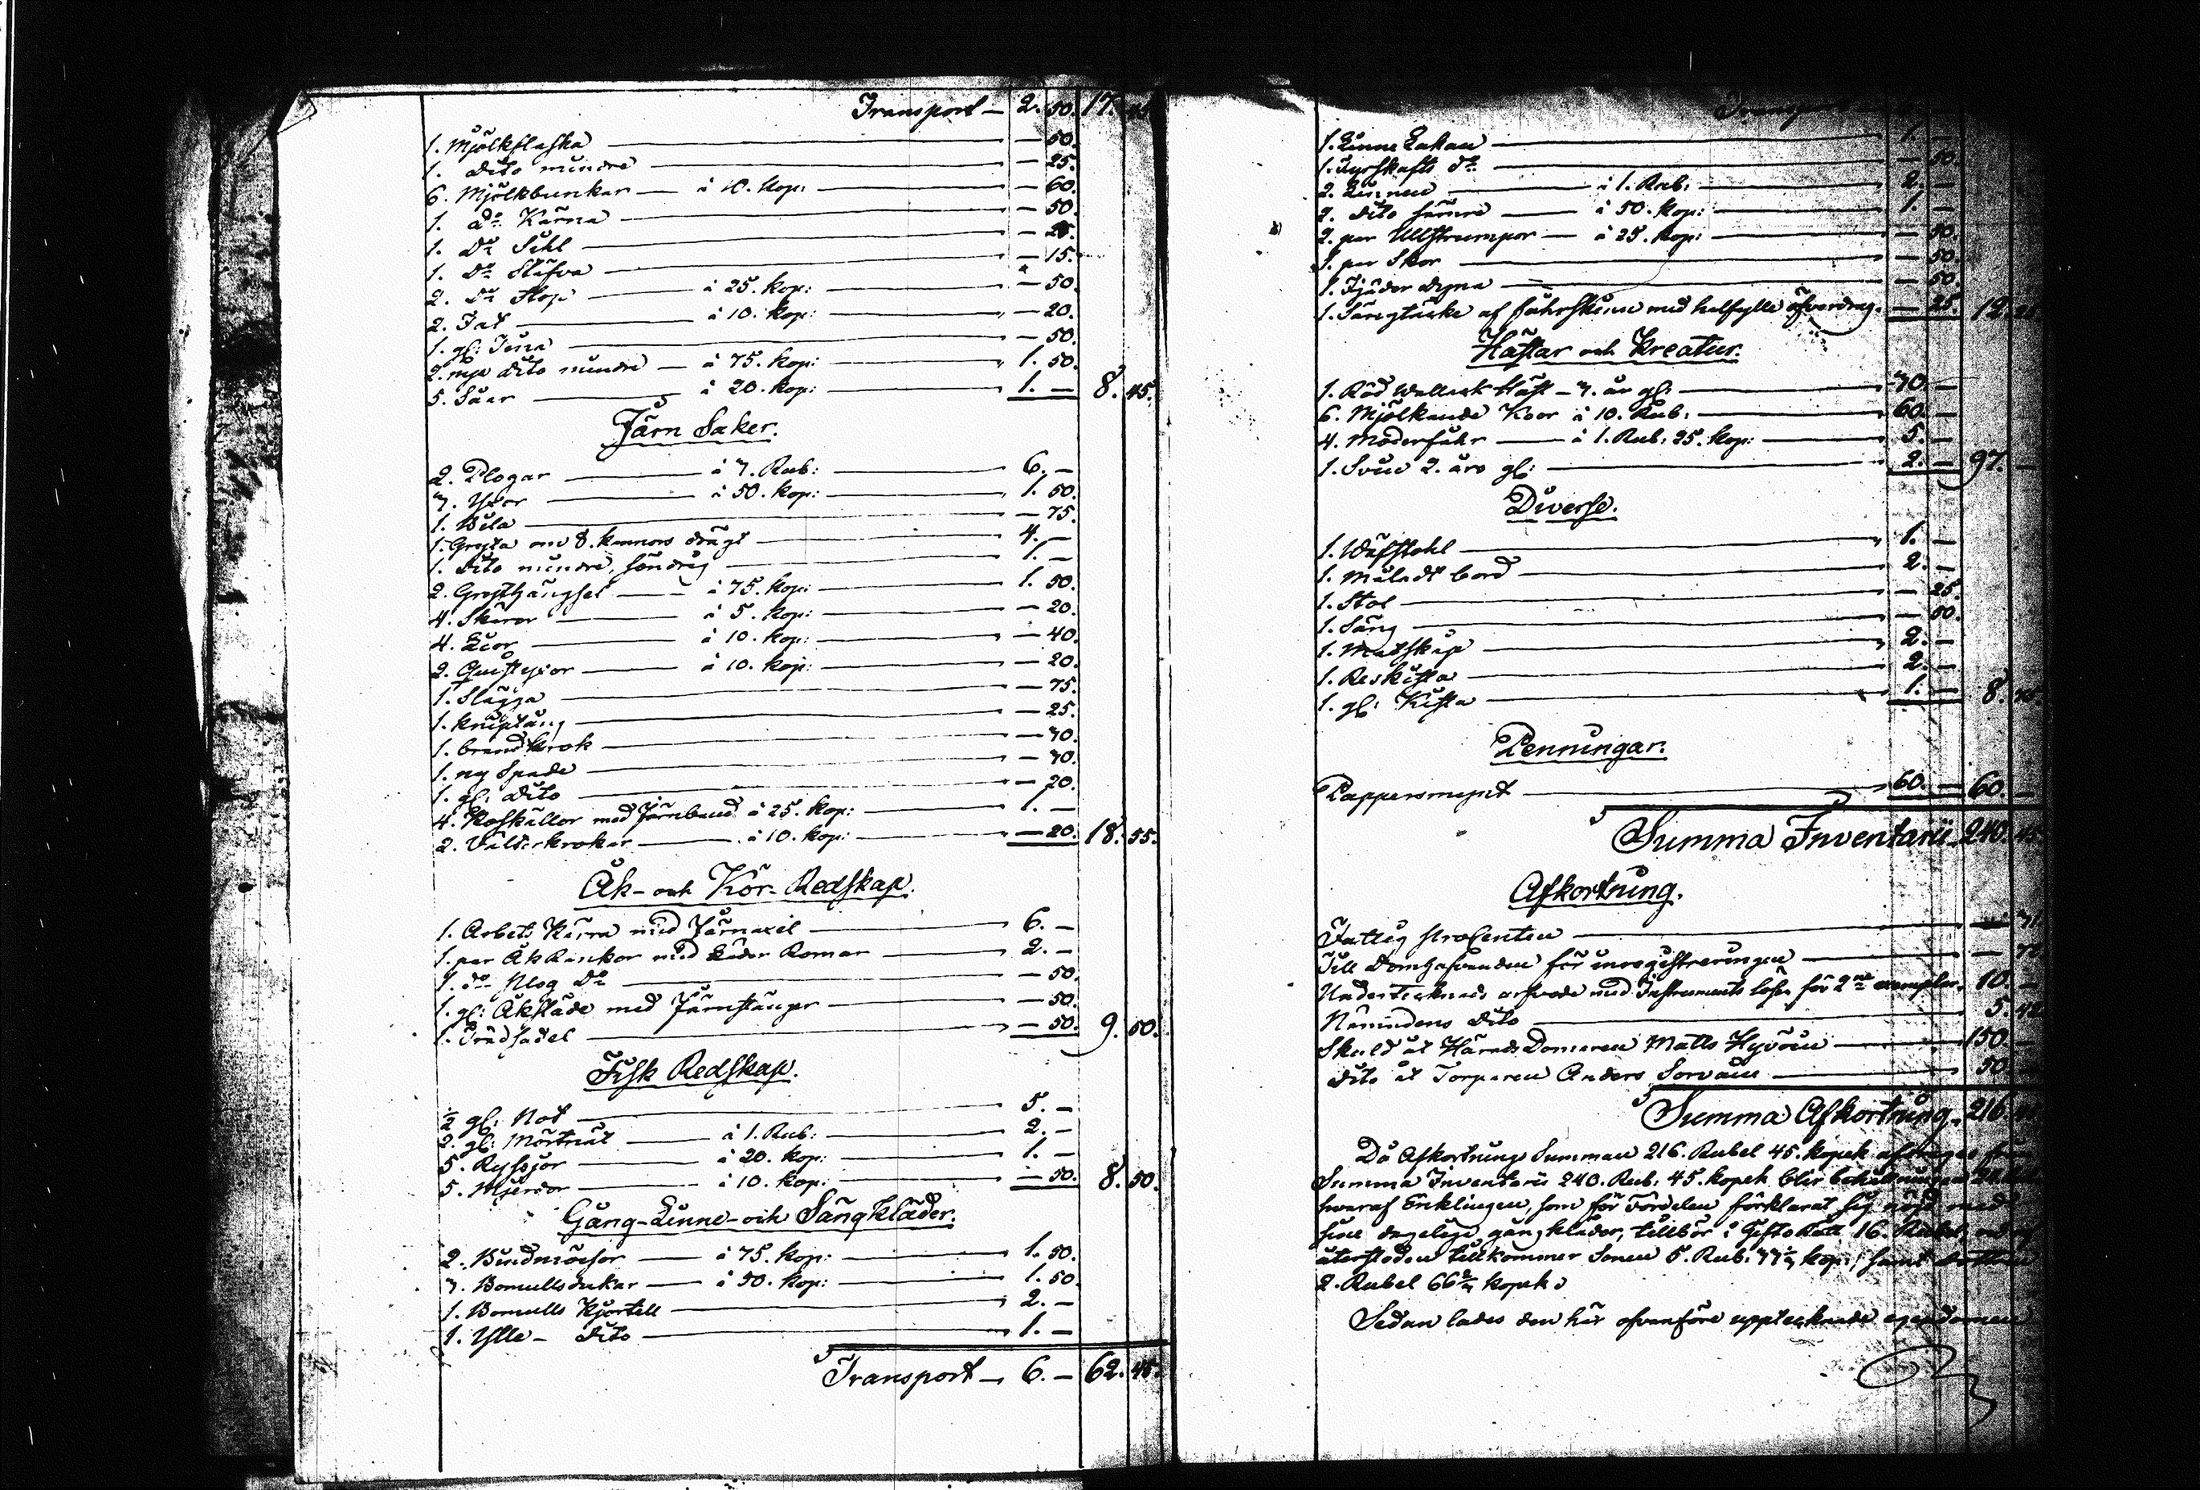 Transport — 2. 50. 17. 45.
1. Mjölkflaska — 50.
1. dito mindre — 25.
6. Mjölkbunkar — á 10. kop: — 60.
1. do Kärna — 50.
1. Do Sihl — 25.
1. Do Stäfva — 15.
2. Do Stop — á 25. kop: — 50.
2. Fat — á 10. kop: — 20.
1. gl: Tina — 50.
2. nya dito mindre — á 75. kop: 1. 50.
5. Såar — á 20. kop: 1. — 8. 45.
Järn Saker.
2. Plogar — á 3. Rub: 6. —
3. Yxor — á 50. kop: 1. 50.
1. Bila — 75.
1. Gryta om 8. kannors drägt 4. —
1. Dito mindre, söndrig 1. —
2. Grythängsel — á 75. kop: 1. 50.
4. Skäror — á 5. kop: — 20.
4. Liar — á 10. kop: — 40.
2. — á 10. kop: — 20.
1. Slägga — 75.
1. Kniptång — 25.
1. brandkrok — 30.
1. ny Spade — 30.
1. gl: dito — 20.
4. Koskällor med Järnband á 25. kop: 1. —
2. krokar — á 10. kop: — 20. 18. 55.
Åk- och Kör-Redskap.
1. Arbets Kärra med Järnaxel 6. —
1. par Åk Rankor med Läder Remar 2. —
1. do Plog do — 50.
1. gl: Åksläde med Järnstänger — 50.
1. Trädsadel — 50. 9. 50.
Fisk Redskap.
½ gl: Not 5. —
2. gl: Mörtnät — á 1. Rub: 2. —
5. Ryssjor — á 20. kop: 1. —
5. Mjerdor — á 10. kop: — 50. 8. 50.
Gång-Linne-och Sängkläder.
2. Bindmössor — á 75. kop: 1. 50.
3. Bomullsdukar — á 50. kop: 1. 50.
1. Bomulls Kjortell 2. —
1. Ylle- Dito 1. —
Transport — 6. — 62. 45.
Transport
1. Linne Lakan 1. —
1. do — 50.
2. Linnen — á 1. Rub: 2. —
2. dito sämre — á 50. kop: 1. —
2. par Ullstrumpor — á 25. kop: — 50.
1. par Skor — 50.
1. Fjäder dyna — 50.
1. Sängtäcke af fåhrskinn med halfylle öfverdrag. — 25. 12. 25.
Hästar och Kreatur.
1. Röd Wallack Häst — 7. år gl: 30. —
6. Mjölkande Koor á 10. Rub: 60. —
4. Moderfåhr — á 1. Rub: 25. kop: 5. —
1. Svin 2. års gl: 2. — 97. —
Diverse.
1. Wäfstohl 1. —
1. Måladt bord 2. —
1. Stol — 25.
1. Säng — 50.
1. Matskåp 2. —
1. Reskista 2. —
1. gl: Kista 1. — 8. 75.
Penningar.
Pappersmynt 60. — 60. —
Summa Inventarii 240. 45.
Afkortning.
Fattig procenten
Till Domhafvanden för inregistreringen
Undertecknads arfvode med Instruments lösen för 2ne exemplar. 10. —
Nämndens dito 5.
Skuld åt Härads Domaren Matts Hyvöin 150.
Dito åt Torparen Anders Sorvain 50.
Summa Afkortning. 216.
Då Afkortnings Summan 216. Rubel 45. kopek afdrages från
Summa Inventarii 240. Rub. 45. kopek blir behållningen 24
hwaraf Enklingen, som för Fördelen förklarat sig nöjd med
sine dagelige gångkläder, tillhör i Giftorätt 16. Rubel,
återstoden tillkommer Sonen 5. Rub: 33⅓ kop:
2. Rubel 66⅔ kopek.
Sedan lades den här ofvanföre upptecknade egendomen